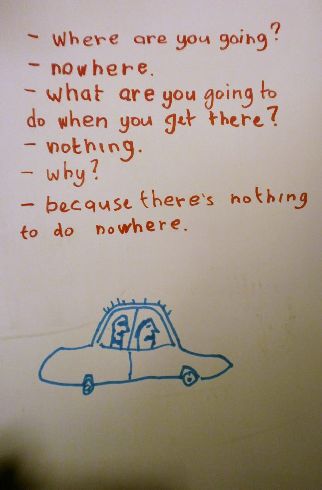 - Where are you going?
- nowhere.
- what are you going to
do when you get there?
- nothing.
- why?
- because there's nothing
to do nowhere.